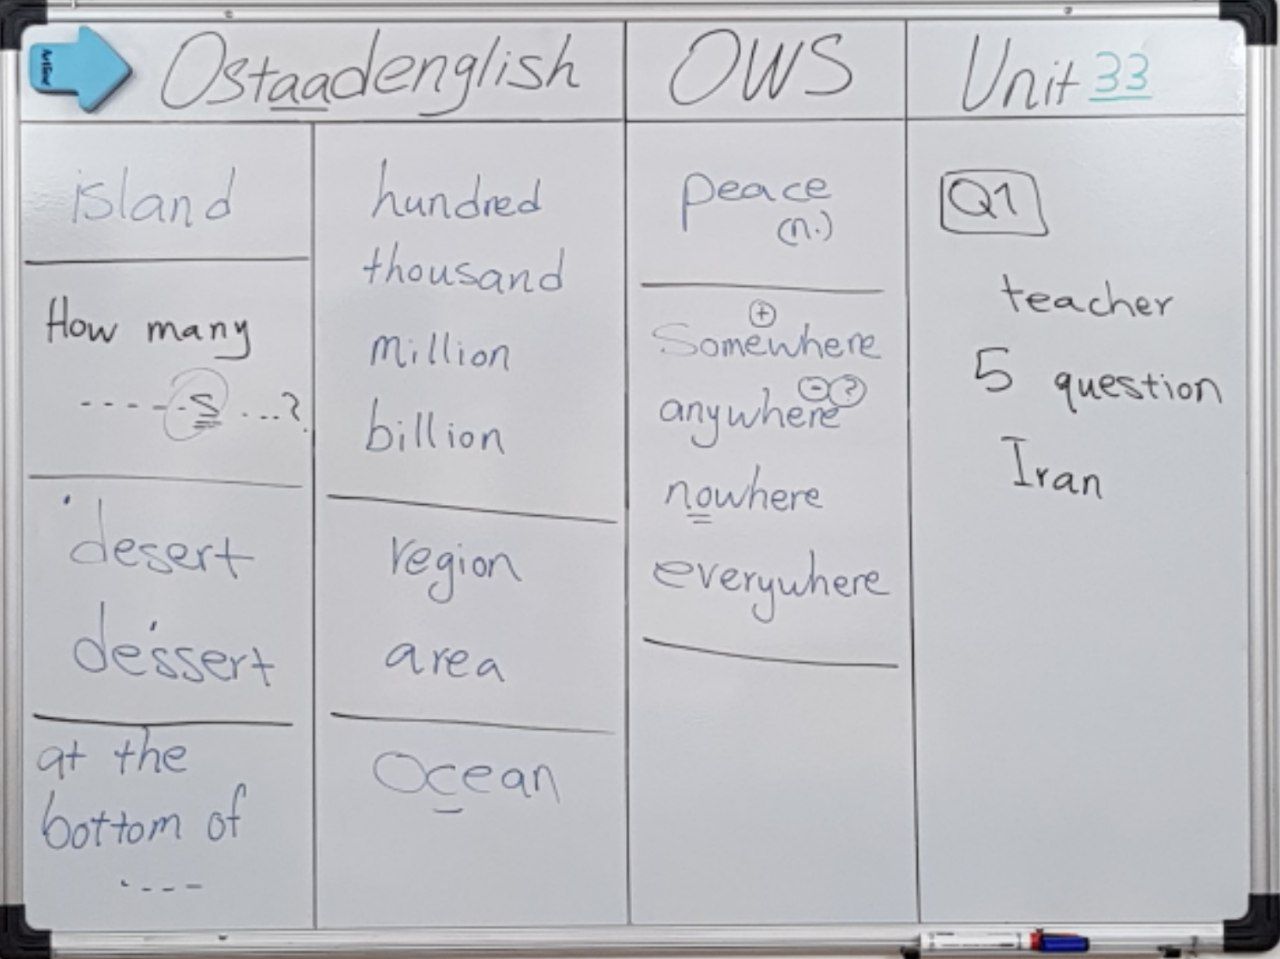 Ostaadenglish
OWS
Unit 33
island
How many
-----s ...?
desert
dessert
at the
bottom of
----
hundred
thousand
million
billion
region
area
Ocean
peace
(n.)
+
Somewhere
- ?
anywhere
nowhere
everywhere
Q1
teacher
5 question
Iran